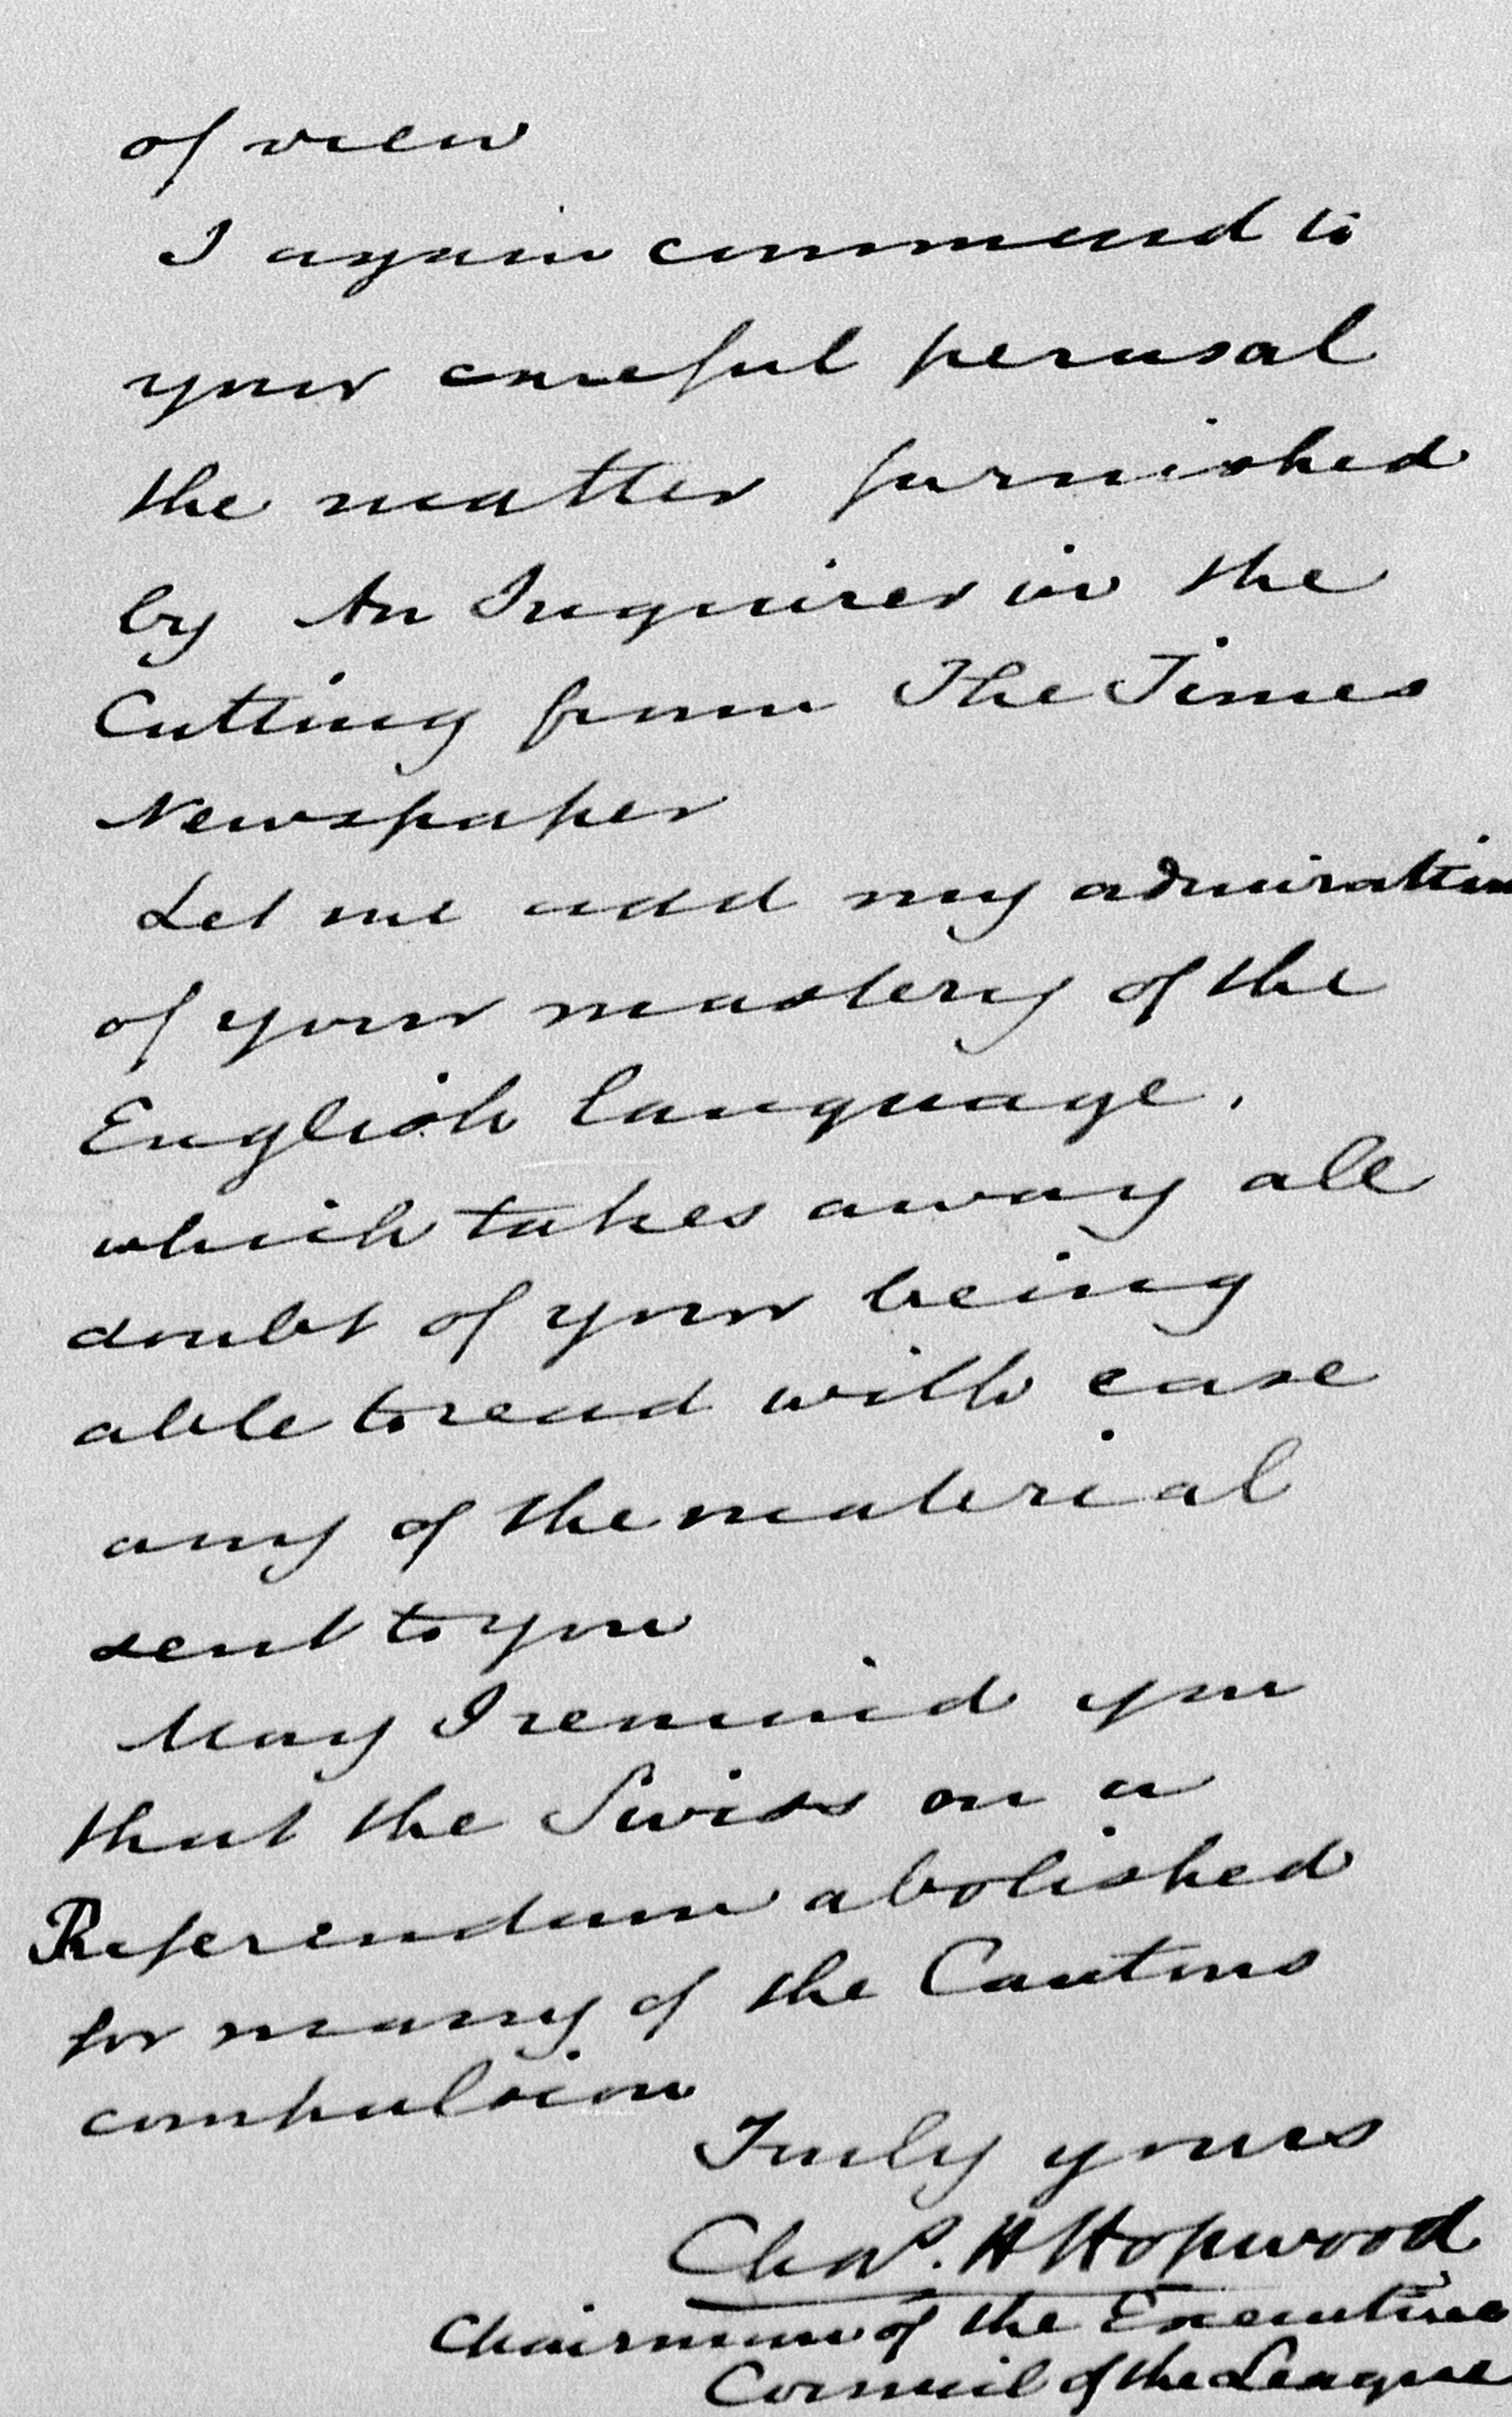 of view
I again commend to
your careful perusal
the matter furnished
by An Inquirer in the
Cutting from The Times
Newspaper
Let me add my admiration
of your mastery of the
English language.
which takes away all
doubt of your being
able to read with ease
any of the material
sent to you
May I remind you
that the Swiss on a
Referendum abolished
for many of the Cantons
compulsion
Truly yours
Chas. H Hopwood
Chairman of the Executive
Council of the League